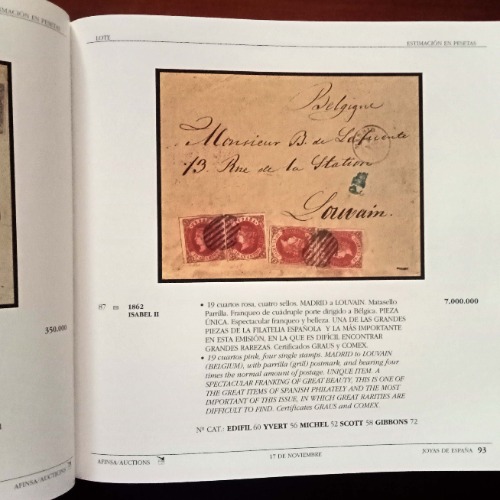 TIMACIÓN EN PESETAS
LOTE
ESTIMACIÓN EN PESETAS
Belgique
Monsieur B. de Lafuente
73 Rue de la Station
Louvain.
87
1862
ISABEL II
350.000
• 19 cuartos rosa, cuatro sellos. MADRID a LOUVAIN. Matasello
Parrilla. Franqueo de cuádruple porte dirigido a Bélgica. PIEZA
ÚNICA. Espectacular franqueo y belleza. UNA DE LAS GRANDES
PIEZAS DE LA FILATELIA ESPAÑOLA Y LA MÁS IMPORTANTE
EN ESTA EMISIÓN, EN LA QUE ES DIFÍCIL ENCONTRAR
GRANDES RAREZAS. Certificados GRAUS y COMEX.
7.000.000
• 19 cuartos pink, four single stamps. MADRID to LOUVAIN
(BELGIUM), with parrilla (grill) postmark, and bearing four
times the normal amount of postage. UNIQUE ITEM. A
SPECTACULAR FRANKING OF GREAT BEAUTY, THIS IS ONE OF
THE GREAT ITEMS OF SPANISH PHILATELY AND THE MOST
IMPORTANT OF THIS ISSUE, IN WHICH GREAT RARITIES ARE
DIFFICULT TO FIND. Certificates GRAUS and COMEX.
Nº CAT.: EDIFIL 60 YVERT 56 MICHEL 52 SCOTT 58 GIBBONS 72
AFINSA/AUCTIONS
AFINSA/AUCTIONS
17 DE NOVIEMBRE
JOYAS DE ESPAÑA 93